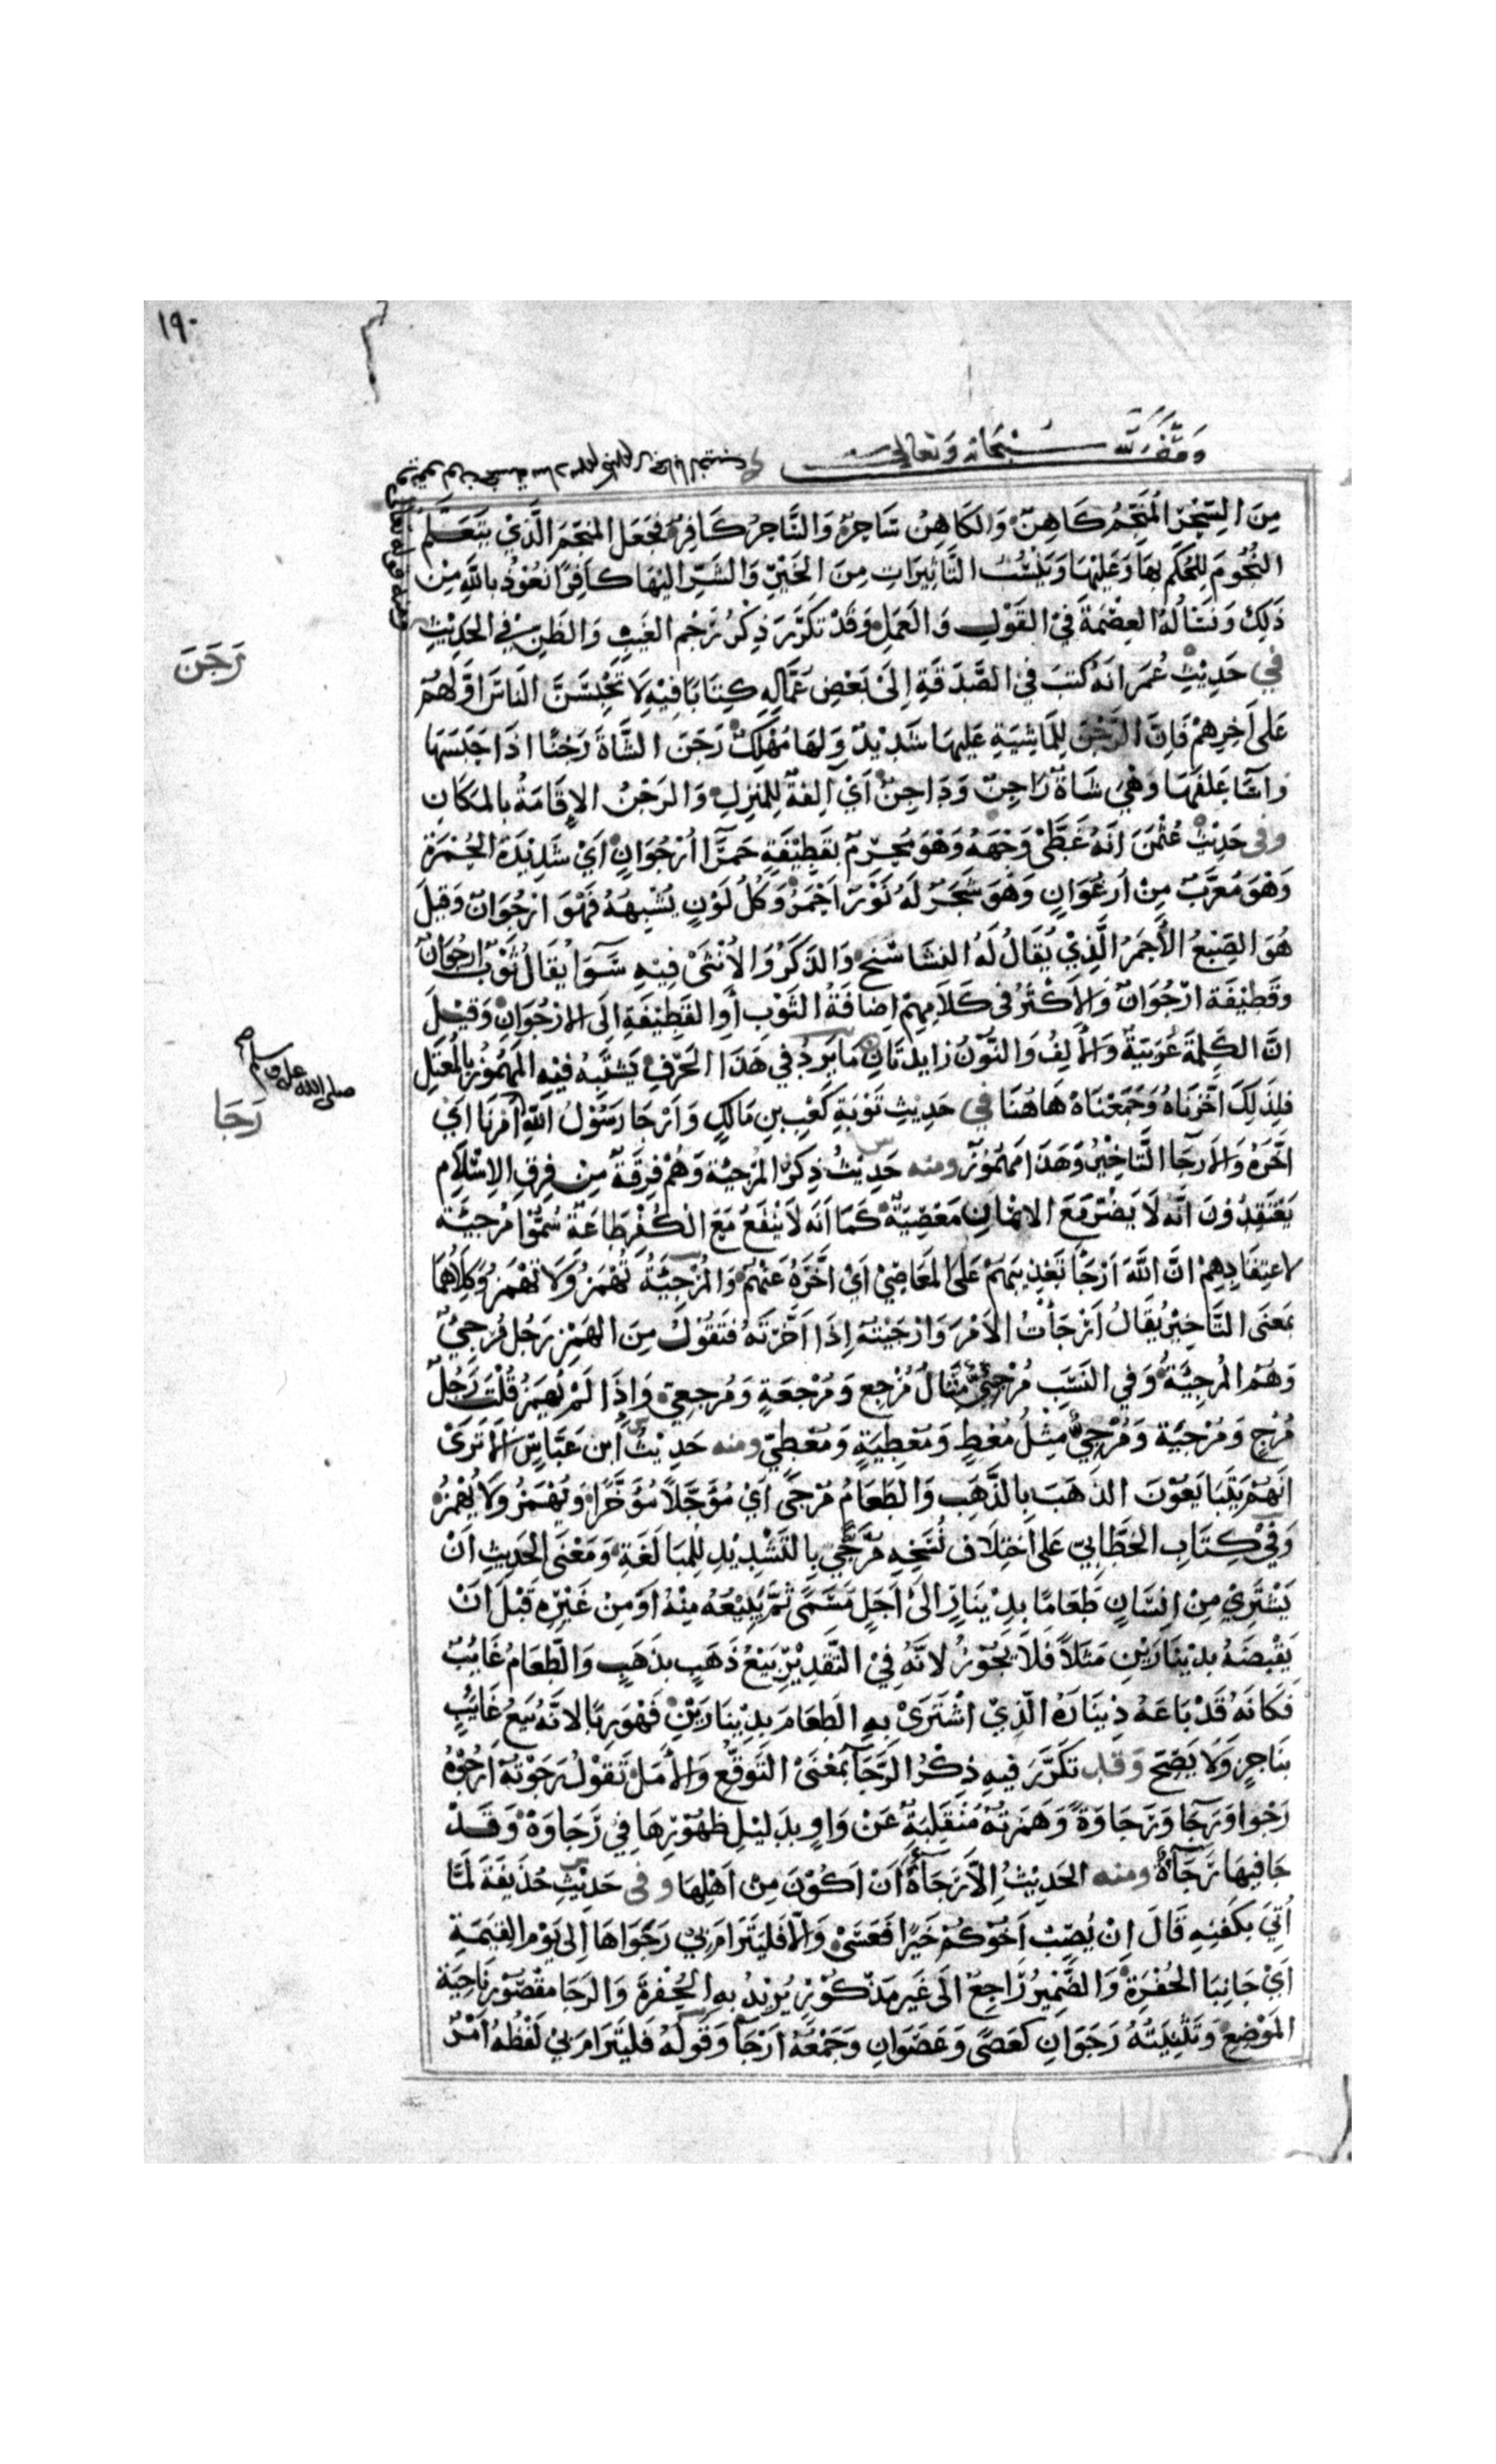 ١٩٠
وقف لله سبحانه وتعالى
مِنَ السِّحْرِ المُنَجِّمُ كَاهِنٌ وَالكَاهِنُ سَاحِرٌ وَالسَّاحِرُ كَافِرٌ فجَعَل المنجّمَ الَّذِيْ يَتَعَلَّم
النُّجُومَ لِلْحُكمِ بِهَا وَعَلَيْهَا وَيَنْسُبُ التَّاثِيرَاتِ مِنَ الخَيْرِ وَالشَّرِّ اليْهَا كافِرًا نَعُوْذُ بِاللَّهِ مِنْ
ذَلِكَ وَنَسْأَلُهُ العِصْمَةَ فِيْ القَوْلِ وَالعَمَلِ وَقَدْ تكَرَّرَ ذِكْرُ رَجْمِ الغَيْبِ وَالظَنِّ فِي الحَدِيْثِ
رَجَنَ
في حَدِيْثِ عُمَرَ انَهُ كتبَ فِيْ الصَّدَقَةِ إِلَىْ بَعْضِ عُمَّالِهِ كِتَابًا فِيْهِ لَا تَحْبِسَنَّ النَاسَ اوَّلَهُمْ
عَلَى آخِرِهِمْ فَاِنَّ الرَّجْنَ لِلمَاشِيَةِ عَلَيهَا شَدِيْدٌ وَلهَا مُهْلِكٌ رَجَنَ الشَّاةَ رَجْنًا اذَا حَبَسَهَا
وَاسَا عَلفَهَا وَهْيَ شَاةٌ رَاجِنٌ وَدَاجِنٌ أَيْ الِفةٌ لِلمَنزِلِ وَالرَجْنُ الاِقَامَةُ بِالمَكَانِ
وفى حَدِيْثِ عُثْمَنَ انَهُ غَطَّىْ وَجْهَهُ وَهْوَ مُحْرِمٌ بقَطِيْفَةٍ حَمرَا اُرْجُوَانٍ اَيْ شَدِيْدَة الحُمْرَة
وَهْوَ مُعَرَّبٌ مِنْ اَرْغُوَانٍ وَهْوَ شَجَرٌ لَهُ نَوْرٌ اَحْمَرُ وَكُلُ لَوْنٍ يُشْبِهُهُ فَهْوَ ارْجُوَانٌ وَقِيْلَ
هُوَ الصِبْغُ الأَحْمَرُ الَّذِيْ يُقَالُ لَهُ النشَاسْتَج وَالذَكَرُ وَالاُنْثَىْ فِيْهِ سَوَآ يُقَالُ ثَوْبٌ ارْجُوَانٌ
وقَطِيْفَة ارْجُوَانٌ وَالاَكْثَرُ فى كَلَامِهِمْ اِضَافَةُ الثَوْبِ أَوِالقَطِيْفَةِ اِلَى الارْجُوَانِ وَقِيْلَ
انَّ الكَلِمَةَ عَرَبيَةٌ وَالاَلِفُ وَالنُّوْنُ زايدَتَانِ مَا يَرِدُ فِي هَذَا الحَرْفِ يَشتَبهُ فيْهِ المَهمُوْزُ بِالمُعتَلِ
صلى الله عليه وسلم
رَجَا
فلِذَلِكَ اَخَّرْنَاهُ وَجَمَعْنَاهُ هَاهُنَا فِي حَدِيْثِ تَوْبَةِ كَعْبِ بنِ مَالِكٍ وَاَرْجَا رَسُوْلُ اللّهِ اَمْرَنَا اَيْ
اَخَّرَهُ وَالاِرجَا التَّاخِيْرُ وَهَذَا مَهْمُوْزٌ ومنه حَدِيْثُ ذِكرِ المُرْجِئَة وَهُمْ فِرقَةٌ مِنْ فِرَقِ الاِسْلَامِ
يَعْتَقِدُوْنَ انَّه لَا يَضُرُّ مَعَ الاِيْمَانِ مَعْصِيَةٌ كَمَا اَنَّه لَا يَنْفَعُ مَعَ الكُفْرِ طَاعَةٌ سُمُّوْا مُرْجِئَةً
لاعتِقَادِهِمْ انَّ اللَّهَ اَرْجَا تَعْذِيبَهُمْ عَلى المَعَاصِيْ اَيْ اَخَّرَهُ عَنْهُمْ وَالمُرْجِئَةُ تُهْمَزُ وَلَا تُهْمَزُ وَكِلَاهُمَا
بمَعْنَى التَّاخِيْرِ يُقَالُ اَرْجَأْتُ الاَمْرَ وَارْجَيْتُهُ إِذَا اَخَّرْتَهُ فتَقُوْلُ مِنَ الهَمْزِ رَجُل مُرجِئٌ
وَهُمْ المُرجِئَةُ وَفِي النَسَبِ مُرْجِئِيٌّ مِثَالُ مُرْجِعٍ وَمُرْجِعَةٍ وَمُرجِعِيٍّ وَإِذَا لَمْ يُهمَز قُلْتَ رَجُلٌ
مُرْجٍ وَمُرْجِيَة وَمُرْجِيٌّ مِثْلُ مُعْطٍ وَمُعْطِيَةٍ وَمُعْطِيٍّ ومنه حَدِيْثُ ابن عَبَّاسٍ اَلَا تَرَىْ
اَنَهُمْ يَتَبَايَعُوْنَ الذَهَبَ بِالذَّهَبِ وَالطَعَامُ مُرْجًى اَيْ مُؤَجَّلًا مُؤَخَّرًا وَيُهْمَزُ وَلَا يُهْمَزُ
وَفِيْ كِتَابِ الخَطَّابِيِّ عَلى اختِلَاف نُسَخِهِ مُرَجًّى بِالتَشْدِيْدِ لِلْمُبَالَغَةِ وَمَعْنَى الحَدِيثِ اَنْ
يَشْتَرِيْ مِنْ اِنْسَانٍ طَعَامًا بِدِيْنَارٍ الىْ اَجَلٍ مُسَمًى ثُمَّ يَبِيْعَهُ مِنْهُ اَوْ مِنْ غَيْرِهِ قَبْلَ اَنْ
يَقْبِضَهُ بِدِيْنَارَيْنِ مَثَلًا فَلَا يَجُوْزُ لانَّهُ فِيْ التَّقدِيْرِ بَيْعُ ذَهَبٍ بِذَهَبٍ وَالطَّعَامُ غَايِبٌ
فكَانَهُ قَدْ بَاعَهُ دِيْنَارَهُ الَّذِيْ اشْتَرَىْ بِهِ الطعَامَ بِدِيْنَارَيْنِ فَهْوَ رِبًا لانَّهُ بَيْعُ غَايْبٍ
بِنَاجِزٍ وَلَا يَصِحُ وَقد تكَرَّرَ فيهِ ذِكْرُ الرَّجَآ بمَعْنَىْ التَوَقُّعِ وَالأَمَلِ تَقُوْلُ رَجَوْتُهُ اَرْجُوْهُ
رَجْوا وَرَجَآ وَرَجَاوَةً وَهَمزَتُهُ مُنْقَلِبَةٌ عَنْ وَاوٍ بِدَلِيْلِ ظُهُوْرِهَا فِي رَجَاوَةٍ وَقَدْ
جَا فِيهَا رَجَآةٌ ومنه الحَدِيْثُ اِلَّا رَجَآةَ اَنْ اَكُوْنَ مِنْ اَهْلِهَا وفى حَدِيْثِ حُذَيْفَةَ لَمَّا
اُتِيَ بكَفَنِهِ قَالَ اِنْ يُصِبْ اَخُوْكُمْ خَيْرًا فَعَسَىْ وَالَّا فَليَتَرَامَ بِيْ رَجَوَاهَا اِلى يَوْمِ القِيٰمَةِ
اَيْ جَانِبَا الحُفْرَةِ وَالضَّمِيْرُ رَاجِعٌ الَى غَيرِ مَذْكُوْرٍ يُرِيْدُ بِهِ الحُفْرَةَ وَالرَجَا مَقصُوْرٌ نَاحِيَة
المَوْضِعِ وَتَثْنِيَتُهُ رَجَوَانِ كعَصًى وَعَصَوَانِ وَجَمْعُهُ اَرْجَآ وَقَولُهُ فَليَتَرَامَ بِيْ لَفْظُهُ اَمْرٌ